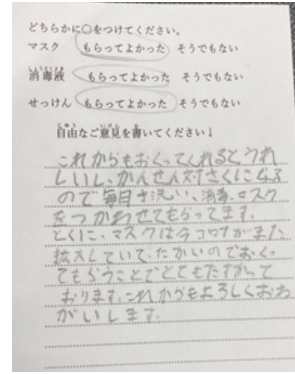 どちらかに○をつけてください。
マスク もらってよかった そうでもない
消毒液 もらってよかった そうでもない
せっけん もらってよかった そうでもない
自由なご意見を書いてください↓
これからもおくってくれるとうれ
しいし、かんせんたいさくになる
ので毎日手洗い、消毒、マスク
をつかわせてもらってます。
とくに、マスクは今コロナがまた
拡大していて、たかいのでおくっ
てもらうことでとてもたすかって
おります。これからもよろしくおね
がいします。